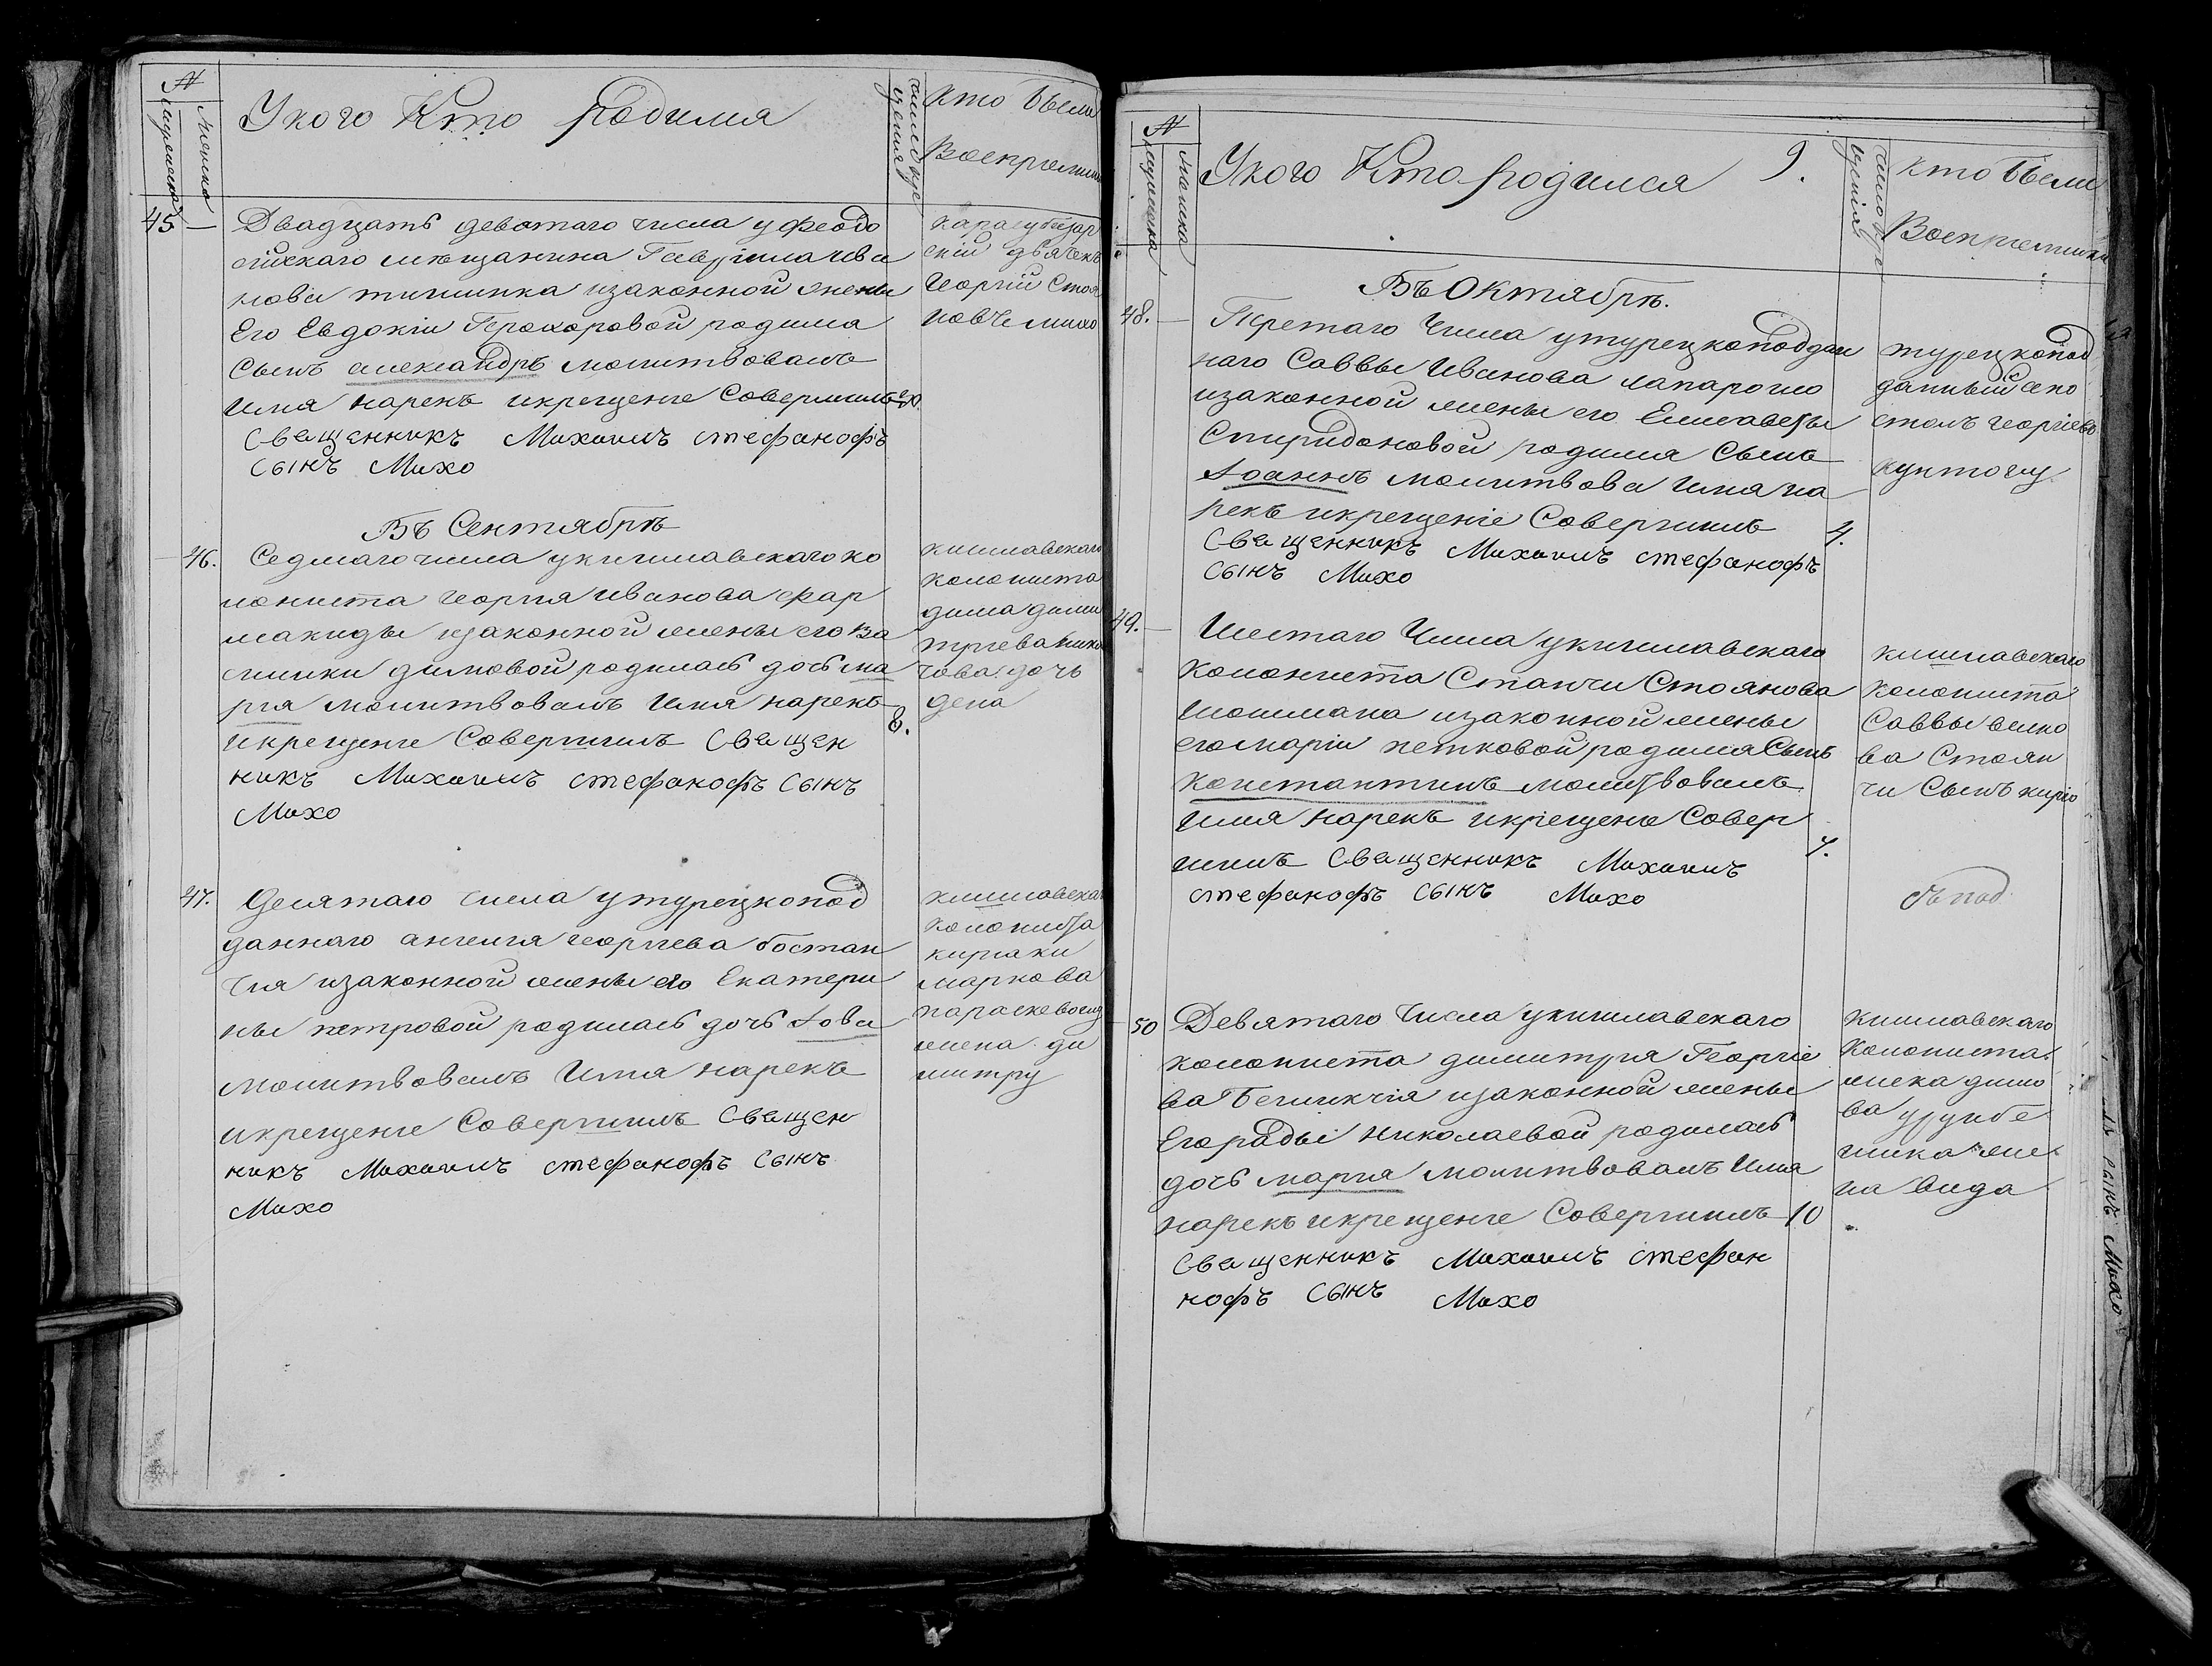 №
мущеска
женска
Укого Кто родился
число кре
щения
кто были
Восприемни
45 —
Двадцать девятаго числа у феодо
сийскаго мещанина Гавриила ива
нова тишинка изаконной жены
Его Евдокіи Прохоровой родился
Сынъ александръ молитвовалъ
имя нарекъ икрещение Совершилъ
Священникъ Михаилъ стефанофъ
сынъ Михо
карасубазар
скій дьячекъ
Георгій Стоя
новъ михо
Въ Сентябрѣ
— 46.
Седмаго числа укишлавскаго ко
лониста георгия иванова фар
макиды изаконной жены его Ва
силики димовой родилась дочь ма
рия молитвовалъ имя нарекъ
икрещение Совершилъ Священ
никъ Михаилъ стефанофъ Сынъ
Михо
8.
кишлавскаго
колониста
дима дими
триева
чова дочь
дена
47.
Десятаго числа у турецкопод
даннаго ангелия георгиева бостан
чия изаконной жены его Екатери
ны петровой родилась дочь
молитвовалъ имя нарекъ
икрещение Совершилъ Священ
никъ Михаилъ стефанофъ Сынъ
Михо
кишлавска
колониста
кириаки
маркова
жена ди
митру
№
мущеска
женска
Укого Кто родился 9.
число кре
щенія
кто были
Восприемники
Въ Октябрѣ.
48. —
Третаго Числа утурецкоподдан
наго Саввы Иванова
изаконной жены его Елисаветы
Спиридоновой родился Сынъ
Іоаннъ молитвова имя на
рекъ икрещеніе Совершилъ
Священникъ Михаилъ стефанофъ
сынъ Михо
4.
турецкопод
данный апо
столъ георгиевъ
49. —
Шестаго Числа укишлавскаго
колониста Станчи Стоянова
шошмана изаконной жены
его маріи петковой родился Сынъ
константинъ молитвовалъ
имя нарекъ икрещение Совер
шилъ Священникъ Михаилъ
стефанофъ сынъ Михо
7.
кишлавскаго
колониста
Саввы велко
ва Стоян
чи Сынъ киріо
— 50
Девятаго Числа укишлавскаго
колониста димитрия Георгіе
ва изаконной жены
Его рады николаевой родилась
дочь мария молитвовалъ имя
нарекъ икрещение Совершилъ
Священникъ Михаилъ стефан
нофъ сынъ Михо
10
кишлавскаго
колониста
димо
ва
жe
на вида